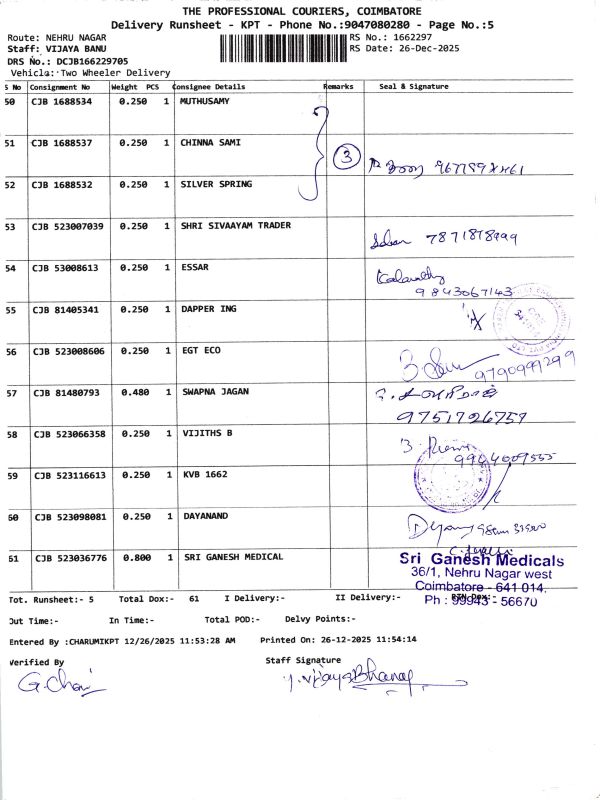 THE PROFESSIONAL COURIERS, COIMBATORE
Delivery Runsheet - KPT - Phone No.:9047080280 - Page No.:5
Route: NEHRU NAGAR RS No.: 1662297
Staff: VIJAYA BANU RS Date: 26-Dec-2025
DRS No.: DCJB166229705
Vehicle: Two Wheeler Delivery
S No Consignment No Weight PCS Consignee Details Remarks Seal & Signature
50 CJB 1688534 0.250 1 MUTHUSAMY
51 CJB 1688537 0.250 1 CHINNA SAMI
3
52 CJB 1688532 0.250 1 SILVER SPRING
53 CJB 523007039 0.250 1 SHRI SIVAAYAM TRADER
7871878999
54 CJB 53008613 0.250 1 ESSAR
9843067143
55 CJB 81405341 0.250 1 DAPPER ING
56 CJB 523008606 0.250 1 EGT ECO
9790999299
57 CJB 81480793 0.480 1 SWAPNA JAGAN
9751726757
58 CJB 523066358 0.250 1 VIJITHS B
9944009555
59 CJB 523116613 0.250 1 KVB 1662
60 CJB 523098081 0.250 1 DAYANAND
61 CJB 523036776 0.800 1 SRI GANESH MEDICAL
Sri Ganesh Medicals
36/1, Nehru Nagar west
Coimbatore - 641 014.
Ph : 99943 - 56670
Tot. Runsheet:- 5 Total Dox:- 61 I Delivery:- II Delivery:- RTN Dox:-
Out Time:- In Time:- Total POD:- Delvy Points:-
Entered By :CHARUMIKPT 12/26/2025 11:53:28 AM Printed On: 26-12-2025 11:54:14
Verified By Staff Signature